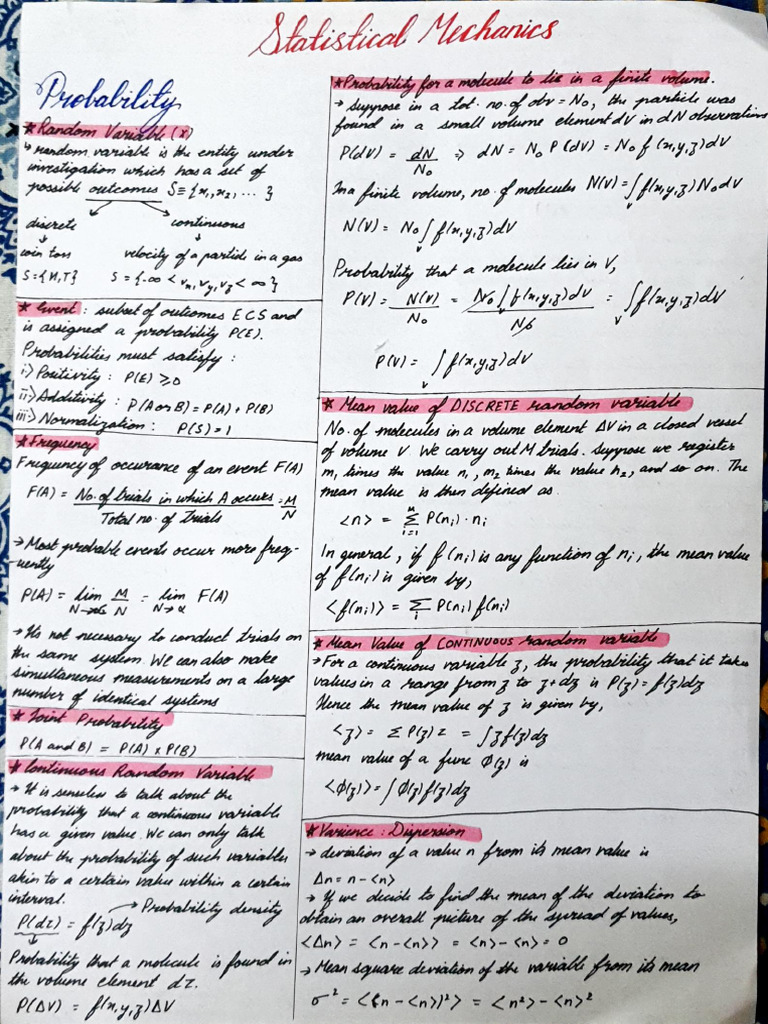 Statistical Mechanics
Probability
* Random Variable (x)
↳ random variable is the entity under
investigation which has a set of
possible outcomes S≡{x₁,x₂, ... }
discrete continuous
↓ ↓
coin toss velocity of a particle in a gas
S={H,T} S={-∞ < vx, vy, vz < ∞}
* Event : subset of outcomes E C S and
is assigned a probability P(E).
Probabilities must satisfy :
i> Positivity : P(E) ≥ 0
ii> Additivity : P(A or B) = P(A) + P(B)
iii> Normalization : P(S) = 1
* Frequency
Frequency of occurance of an event F(A)
F(A) = No. of trials in which A occurs / Total no. of trials = M/N
→ Most probable events occur more freq-
uently
P(A) = lim N→∞ M/N = lim N→∞ F(A)
→ Its not necessary to conduct trials on
the same system. We can also make
simultaneous measurements on a large
number of identical systems
* Joint Probability
P(A and B) = P(A) x P(B)
* Continuous Random Variable
→ It is senseless to talk about the
probability that a continuous variable
has a given value. We can only talk
about the probability of such variables
akin to a certain value within a certain
interval.
→ Probability density
P(dτ) = f(z)dz
Probability that a molecule is found in
the volume element dτ.
P(ΔV) = f(x,y,z)ΔV
* Probability for a molecule to lie in a finite volume.
→ suppose in a tot. no. of obv = N₀, the particle was
found in a small volume element dV in dN observations
P(dV) = dN/N₀ ⇒ dN = N₀ P(dV) = N₀ f(x,y,z)dV
In a finite volume, no. of molecules N(V) = ∫v f(x,y,z) N₀ dV
N(V) = N₀ ∫v f(x,y,z) dV
Probability that a molecule lies in V,
P(V) = N(V)/N₀ = N₀ ∫v f(x,y,z)dV / N₀ = ∫v f(x,y,z)dV
P(V) = ∫v f(x,y,z)dV
* Mean value of DISCRETE random variable
No. of molecules in a volume element ΔV in a closed vessel
of volume V. We carry out M trials. Suppose we register
m₁ times the value n₁, m₂ times the value n₂, and so on. The
mean value is then defined as
<n> = Σ P(nᵢ)·nᵢ
In general, if f(nᵢ) is any function of nᵢ, the mean value
of f(nᵢ) is given by,
<f(nᵢ)> = Σᵢ P(nᵢ) f(nᵢ)
* Mean Value of CONTINUOUS random variable
→ For a continuous variable z, the probability that it takes
values in a range from z to z+dz is P(z) = f(z)dz
Hence the mean value of z is given by,
<z> = Σ P(z) z = ∫ z f(z) dz
mean value of a func φ(z) is
<φ(z)> = ∫ φ(z) f(z) dz
* Varience : Dispersion
→ deviation of a value n from its mean value is
Δn = n - <n>
→ If we decide to find the mean of the deviation to
obtain an overall picture of the spread of values,
<Δn> = <n - <n>> = <n> - <n> = 0
→ Mean square deviation of the variable from its mean
σ² = <(n - <n>)²> = <n²> - <n>²